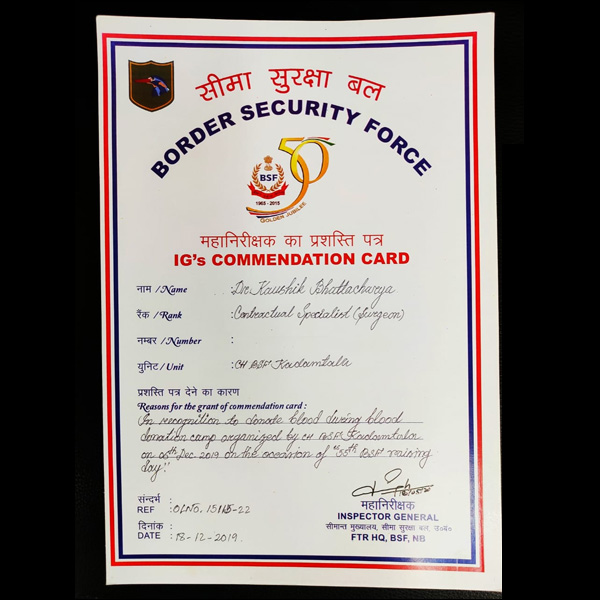 सीमा सुरक्षा बल
BORDER SECURITY FORCE
50
BSF
1965 - 2015
GOLDEN JUBILEE
महानिरीक्षक का प्रशस्ति पत्र
IG's COMMENDATION CARD
नाम /Name : Dr. Kaushik Bhattacharya
रैंक /Rank : Contractual Specialist (Surgeon)
नम्बर /Number :
युनिट/Unit : CH BSF Kadamtala
प्रशस्ति पत्र देने का कारण
Reasons for the grant of commendation card :
In recognition to donate blood during blood
donation camp organized by CH BSF Kadamtala
on 06th Dec 2019 on the occasion of "55th BSF raising
day".
संदर्भ
REF : OLNO. 15115-22
दिनांक
DATE : 18-12-2019.
महानिरीक्षक
INSPECTOR GENERAL
सीमान्त मुख्यालय, सीमा सुरक्षा बल, उ०ब०
FTR HQ, BSF, NB